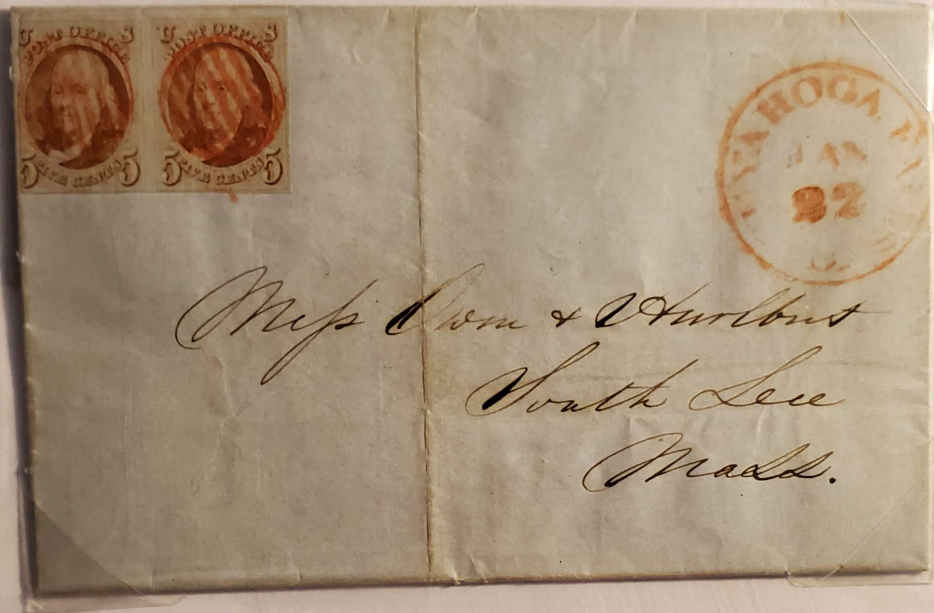 U S
POST OFFICE
5 FIVE CENTS 5
U S
POST OFFICE
5 FIVE CENTS 5
CUYAHOGA FALLS
JAN
22
O.
Mess Owen & Hurlbut
South Lee
Mass.